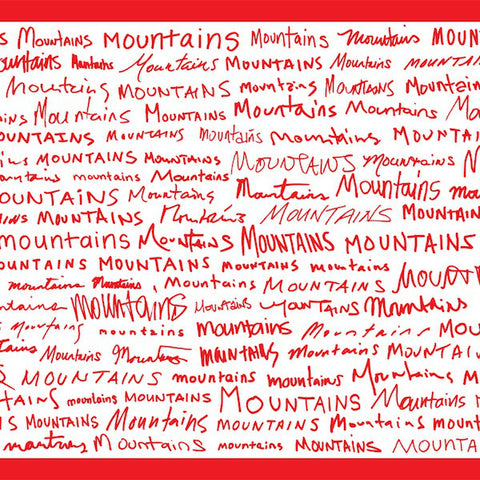 S MOUNTAINS mountains Mountains Mountains MOUN
ountains Mountains Mountains MOUNTAINS Mountains MOUNTAIN
Mountains MOUNTAINS mountains MOUNTAINS MOUNTAINS
INS Mountains MOUNTAINS Mountains Mountains Mo
OUNTAINS MOUNTAINS mountains Mountains MOUNTAI
ins MOUNTAINS MOUNTAINS MOUNTAINS mountains M
ountains mountains MOUNTAINS
OUNTAINS Mountains Mountains Mountains mou
ins MOUNTAINS Mountains MOUNTAINS MOUNTAIN
mountains Mountains MOUNTAINS MOUNTAINS
OUNTAINS MOUNTAINS MOUNTAINS mountains
mountains Mountains Mountains MOUNTAINS MOUNT
ntains mountains MOUNTAINS MOUNTAINS Mountains
s Mountains mountains mountains Mountains MOU
tains Mountains Mountains MOUNTAINS mountains MOUNTAI
MOUNTAINS mountains mountains Mountains M
TAINS mountains MOUNTAINS MOUNTAINS Mountains M
S MOUNTAINS Mountains mountains Mountains mou
MOuntains mountains MOUNTAINS MOUNTA